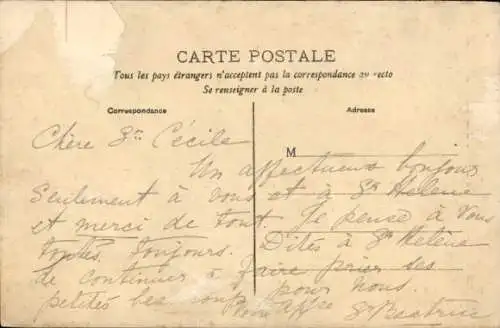 CARTE POSTALE
Tous les pays étrangers n'acceptent pas la correspondance au recto
Se renseigner à la poste
Correspondance
Adresse
M
Chère Sr Cécile
Un affectueux bonjour
Seulement à vous et à Sr Hélène
et merci de tout. Je pense à vous
toutes toujours. Dites à Sr Hélène
de continuer à faire prier ses
petites pour nous.
Votre affée Sr Béatrice